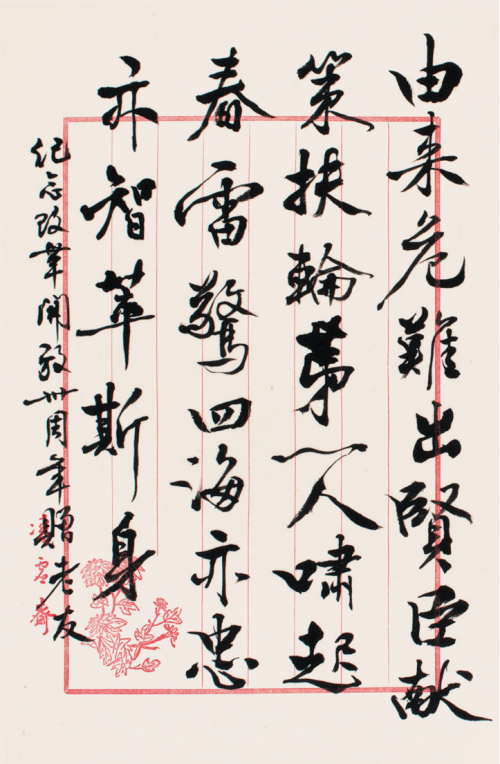 由来危難出賢臣献
策扶輪第一人嘯起
春雷驚四海亦忠
亦智萃斯身
纪念改革開放卅周年贈老友